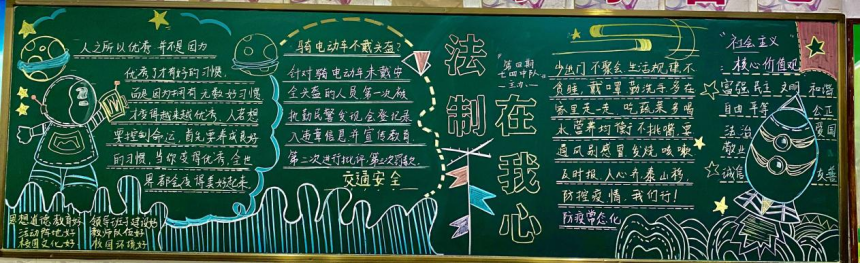 人之所以优秀 并不是因为
优秀才有好的习惯,
而是因为拥有无数好习惯
才变得越来越优秀 人若想
要控制命运, 首先要养成良好
的习惯, 当你变得优秀, 全世
界都会变得美好起来
思想道德教育好
活动阵地好
校园文化好
领导班子建设好
教师队伍好
校园环境好
骑电动车不戴头盔?
针对骑电动车未戴安
全头盔的人员第一次被
执勤民警发现会登记录
入违章信息并宣传教育
第二次进行批评,第三次罚款.
交通安全
法制
在我心
第四期
七四中队
主办
少出门 不聚会 生活规律不
负睡 戴口罩 勤洗手 多在
家里走一走 吃蔬菜 多喝
水 营养均衡不挑嘴 要
通风 别感冒 发烧 咳嗽
及时报 人心齐 泰山移
防控疫情, 我们行!
防疫常态化
"社会主义"
核心价值观
富强 民主 文明 和谐
自由 平等 公正
法治 爱国
敬业
诚信 友善